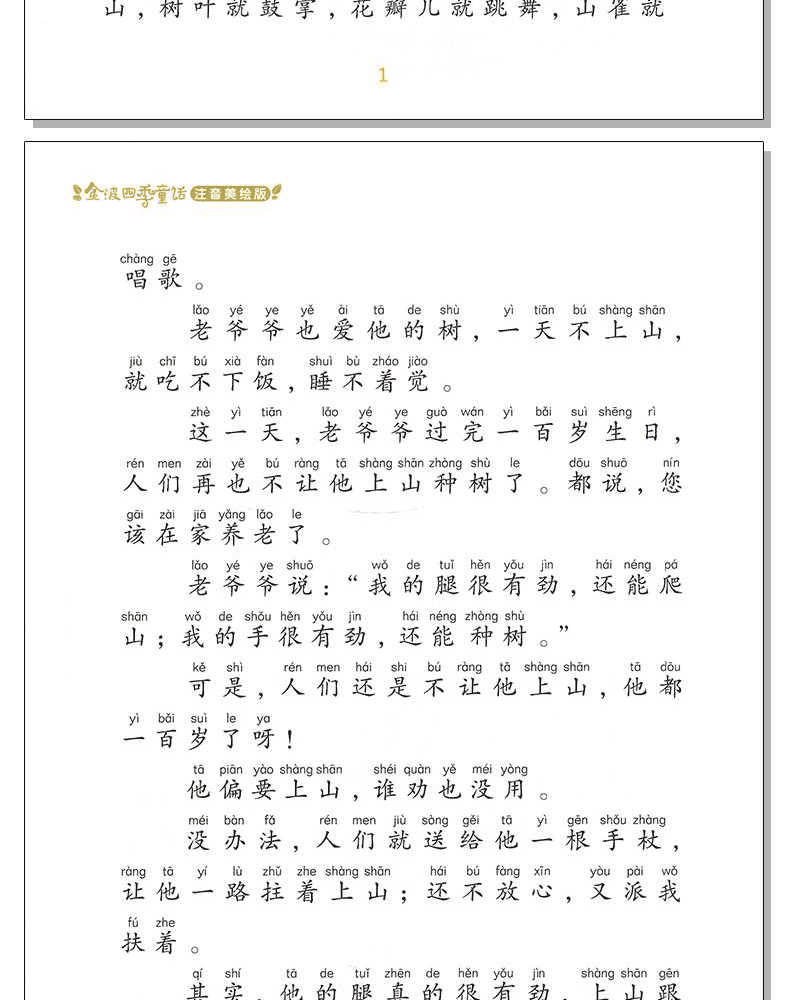 山，树叶就鼓掌，花瓣儿就跳舞，山雀就
1
金波四季童话 注音美绘版
chàng gē
唱歌。
lǎo yé ye yě ài tā de shù yì tiān bú shàng shān
老爷爷也爱他的树，一天不上山，
jiù chī bú xià fàn shuì bù zháo jiào
就吃不下饭，睡不着觉。
zhè yì tiān lǎo yé ye guò wán yì bǎi suì shēng rì
这一天，老爷爷过完一百岁生日，
rén men zài yě bú ràng tā shàng shān zhòng shù le dōu shuō nín
人们再也不让他上山种树了。都说，您
gāi zài jiā yǎng lǎo le
该在家养老了。
lǎo yé ye shuō wǒ de tuǐ hěn yǒu jìn hái néng pá
老爷爷说：“我的腿很有劲，还能爬
shān wǒ de shǒu hěn yǒu jìn hái néng zhòng shù
山；我的手很有劲，还能种树。”
kě shì rén men hái shi bú ràng tā shàng shān tā dōu
可是，人们还是不让他上山，他都
yì bǎi suì le ya
一百岁了呀！
tā piān yào shàng shān shéi quàn yě méi yòng
他偏要上山，谁劝也没用。
méi bàn fǎ rén men jiù sòng gěi tā yì gēn shǒu zhàng
没办法，人们就送给他一根手杖，
ràng tā yí lù zhǔ zhe shàng shān hái bú fàng xīn yòu pài wǒ
让他一路拄着上山；还不放心，又派我
fú zhe
扶着。
qí shí tā de tuǐ zhēn de hěn yǒu jìn shàng shān gēn
其实，他的腿真的很有劲，上山跟